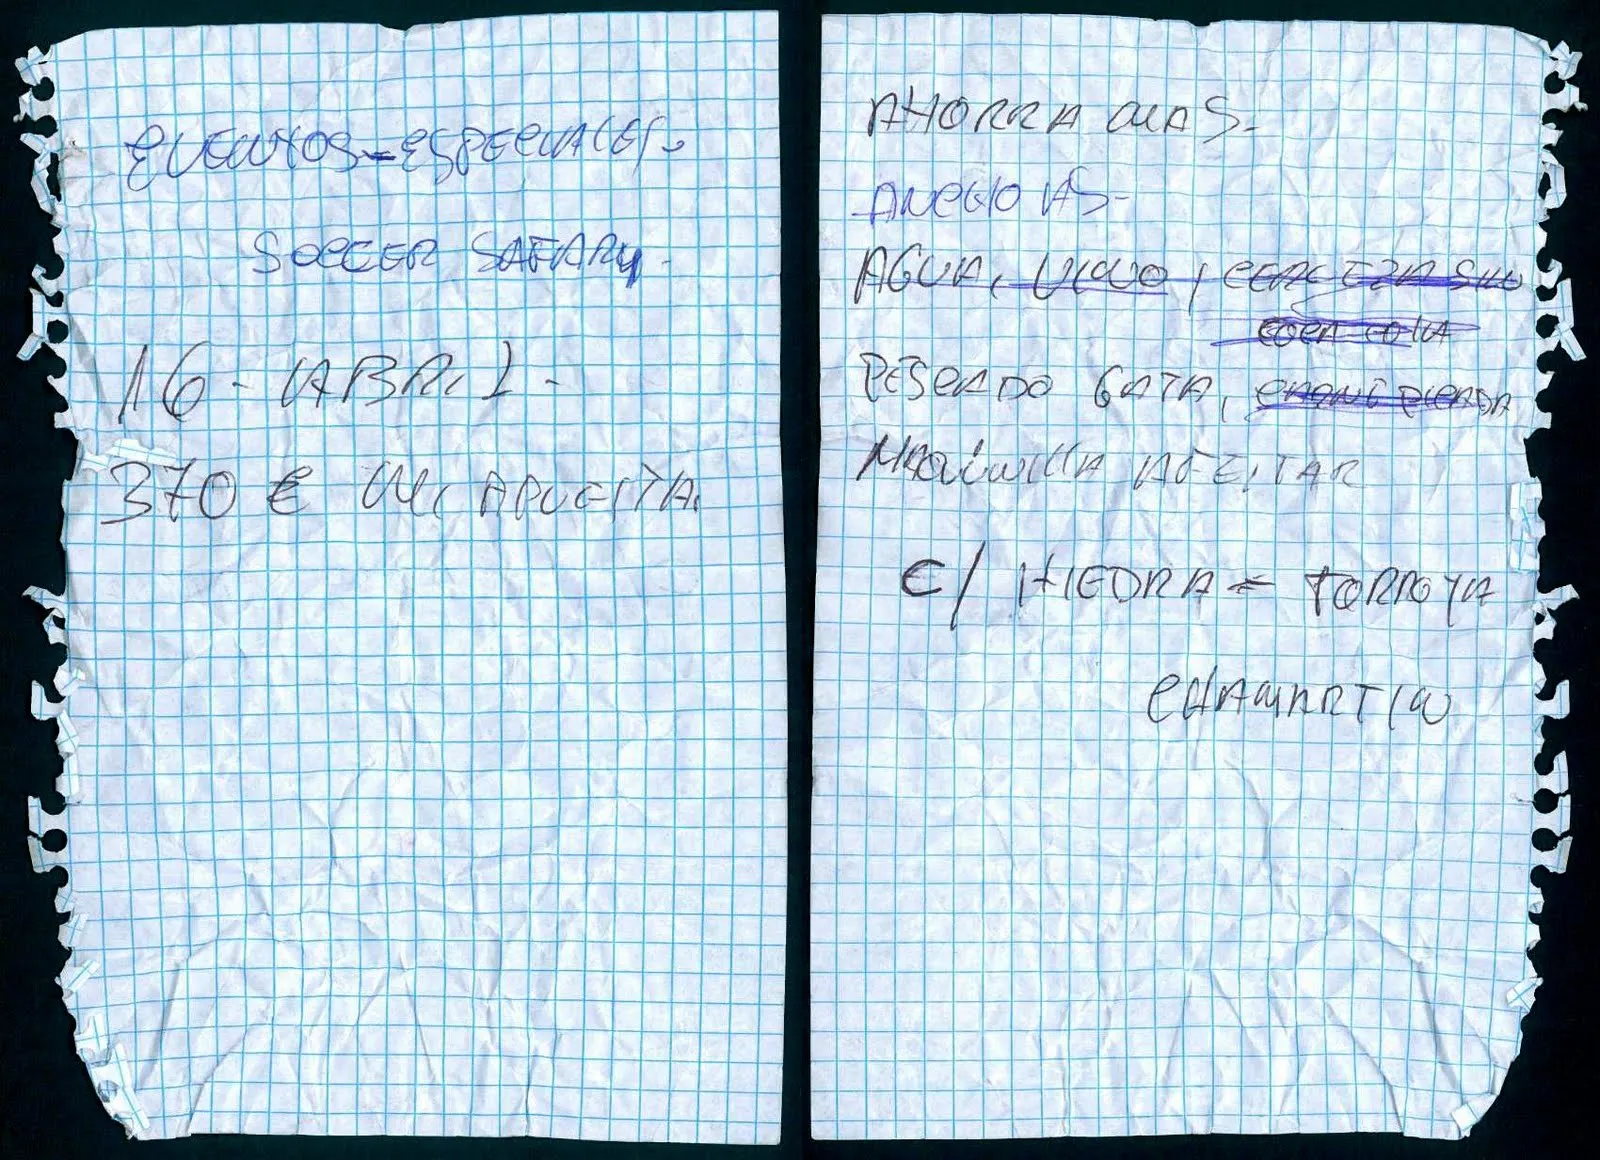 EVENTOS-ESPECIALES-
SOCCER SAFARY.
16-ABRIL-
370 € MI APUESTA.
AHORRA MAS-
ANCHOAS-
AGUA, VINO, CERVEZA SIN
COCA COLA
PESCADO GATA, CARNE PICADA
MAQUINILLA AFEITAR
C/ HIEDRA = TORROJA
CHAMARTIN